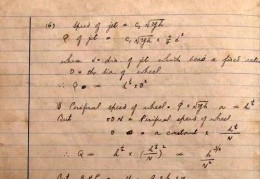 (6) Speed of jet = C₁ √2gh
Q of jet = C₁ √2gh × π/4 d²
where d = dia of jet which bears a fixed ratio
D = the dia of wheel
∴ Q ∝ h^½ × D²
Peripheral speed of wheel = φ × √2gh ∝ h^½
But πDN = Peripheral speed of wheel
D = a constant × h^½/N
∴ Q ∝ h^½ × (h^½/N)² ∝ h^3/2/N²
But